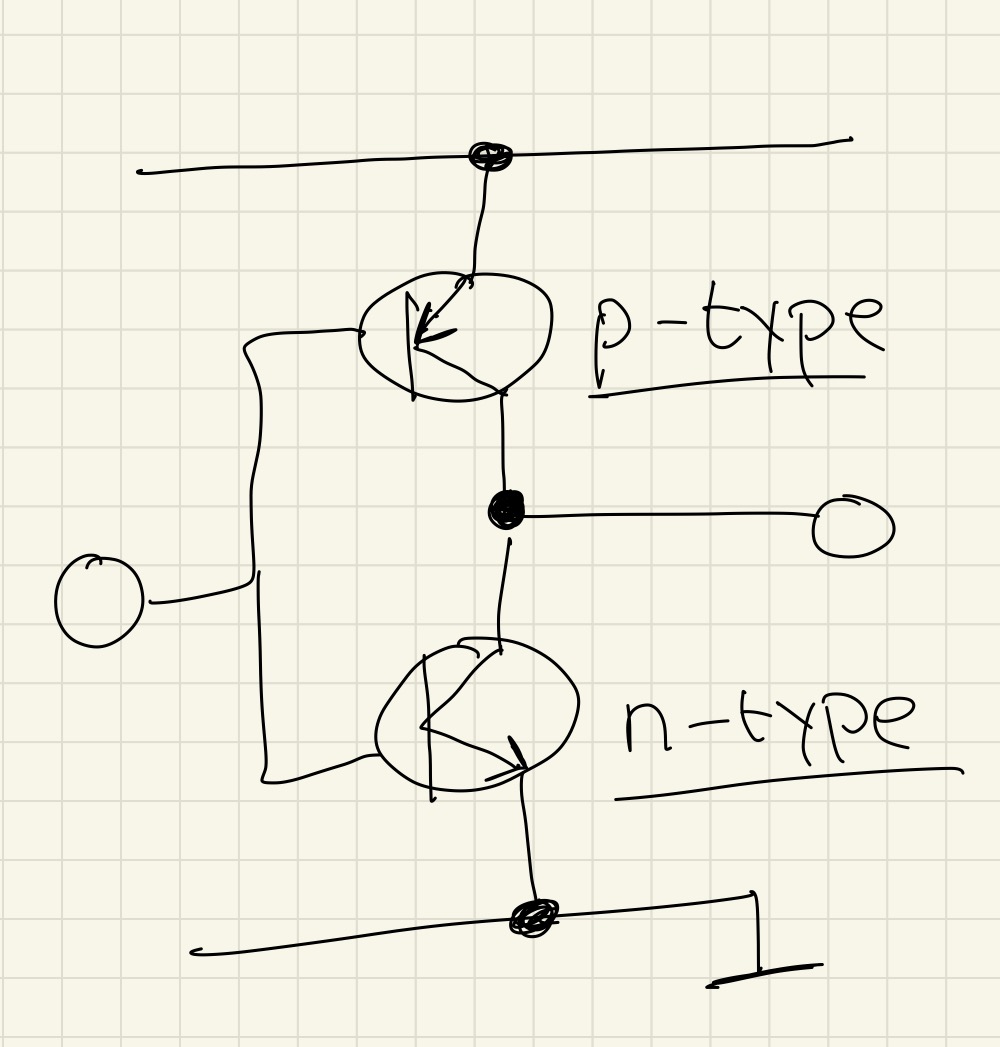 p-type
n-type